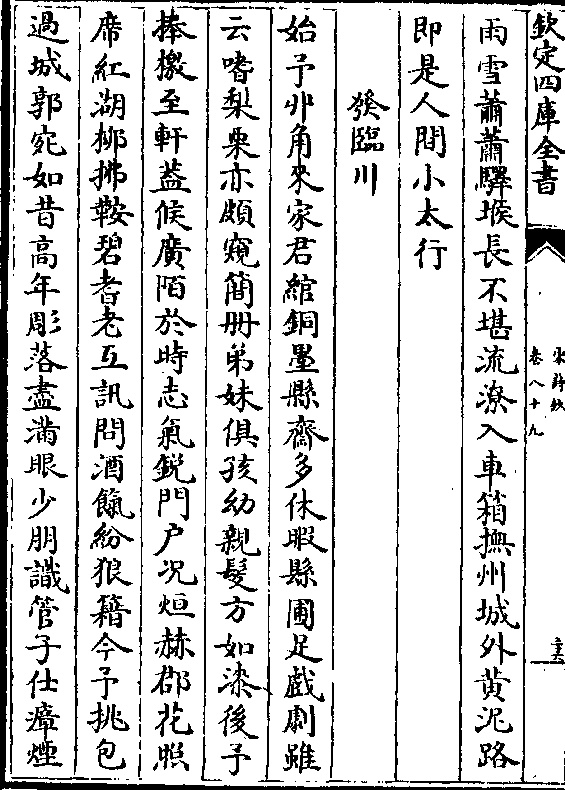 欽定四庫全書
宋詩鈔
卷八十九
雨雪蕭蕭驛堠長不堪流潦入車箱撫州城外黄泥路
即是人間小太行
發臨川
始予丱角來家君綰銅墨縣齋多休暇縣圃足戲劇雖
云嗜梨栗亦頗窺簡册弟妹俱孩幼親髮方如漆後予
捧檄至軒葢候廣陌於時志氣鋭門户况烜赫郡花照
席紅湖柳拂鞍碧耆老互訊問酒餼紛狼籍今予挑包
過城郭宛如昔高年彫落盡滿眼少朋識管子仕瘴煙